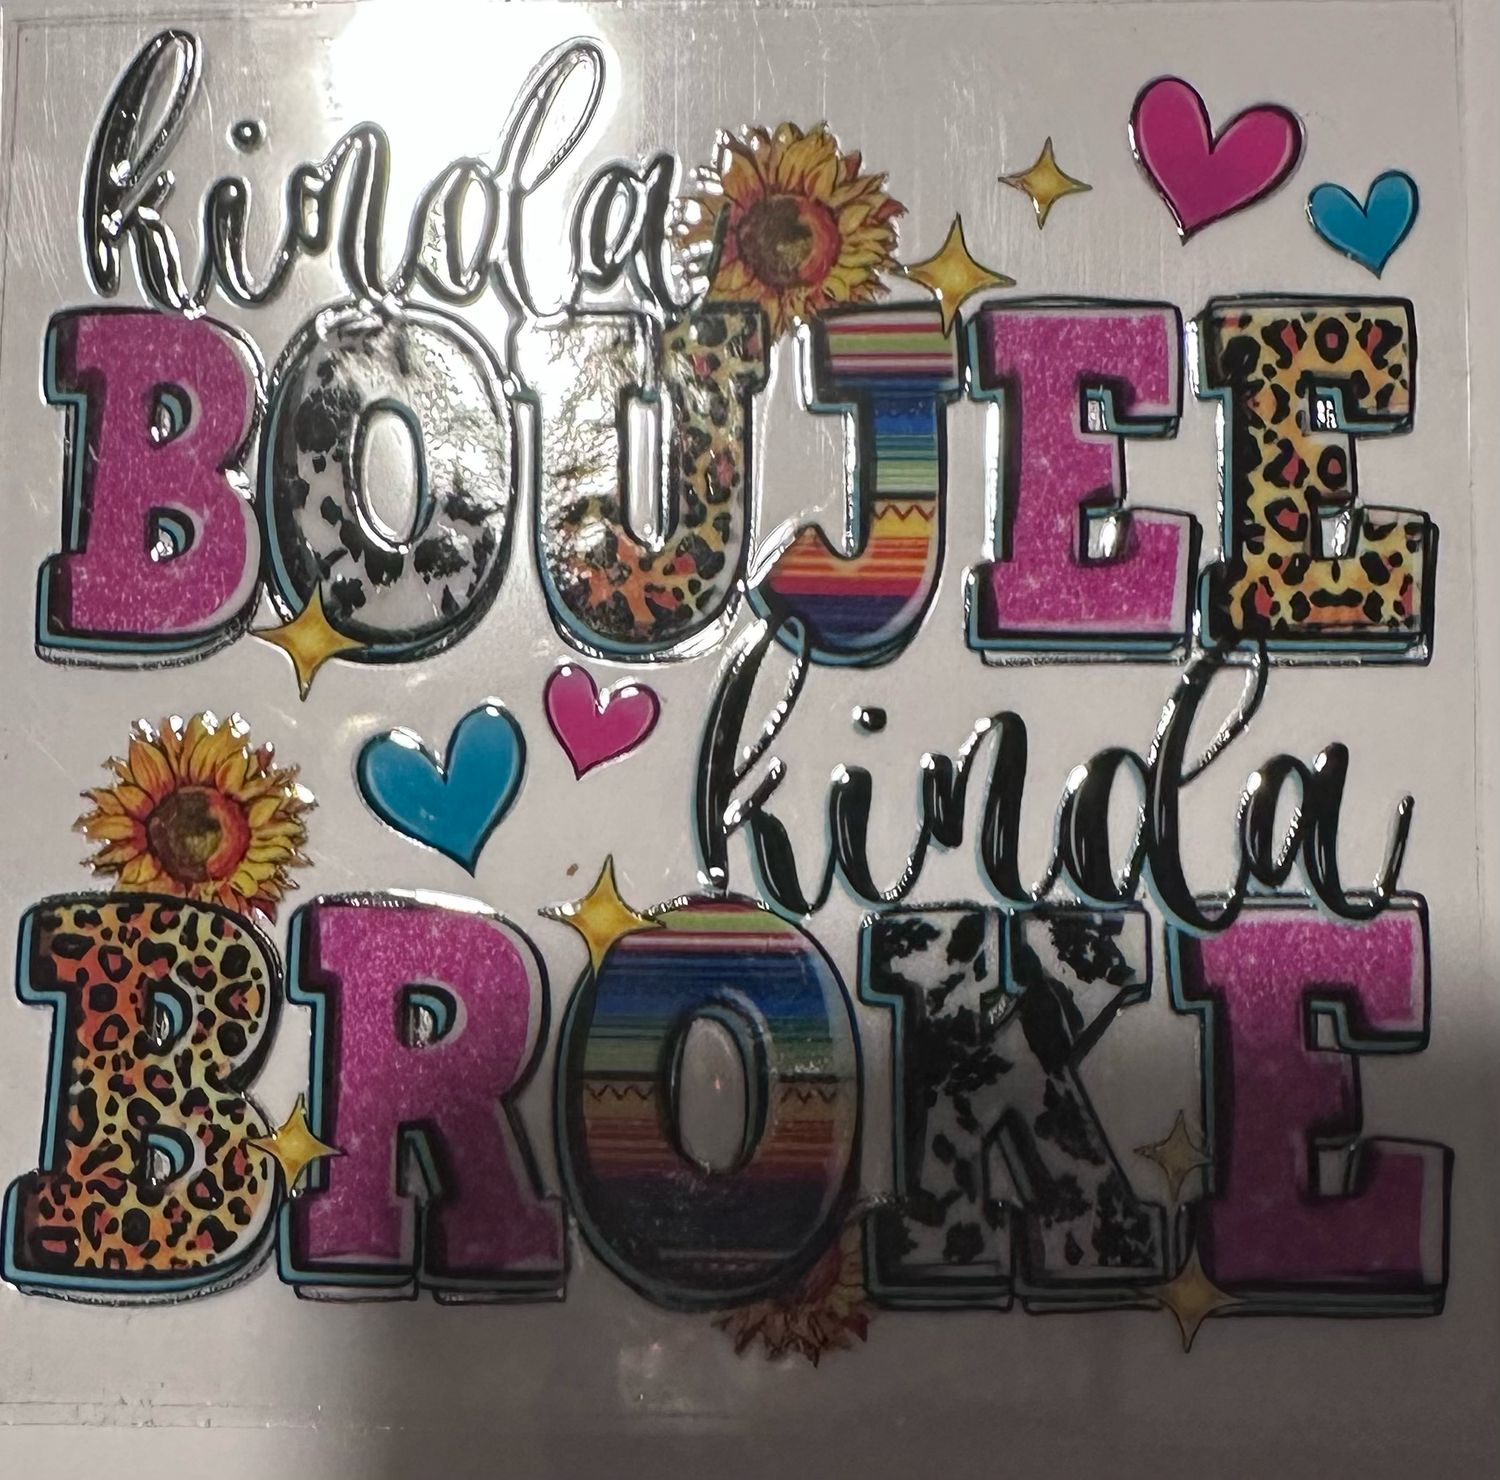 kinda
BOUJEE
kinda
BROKE